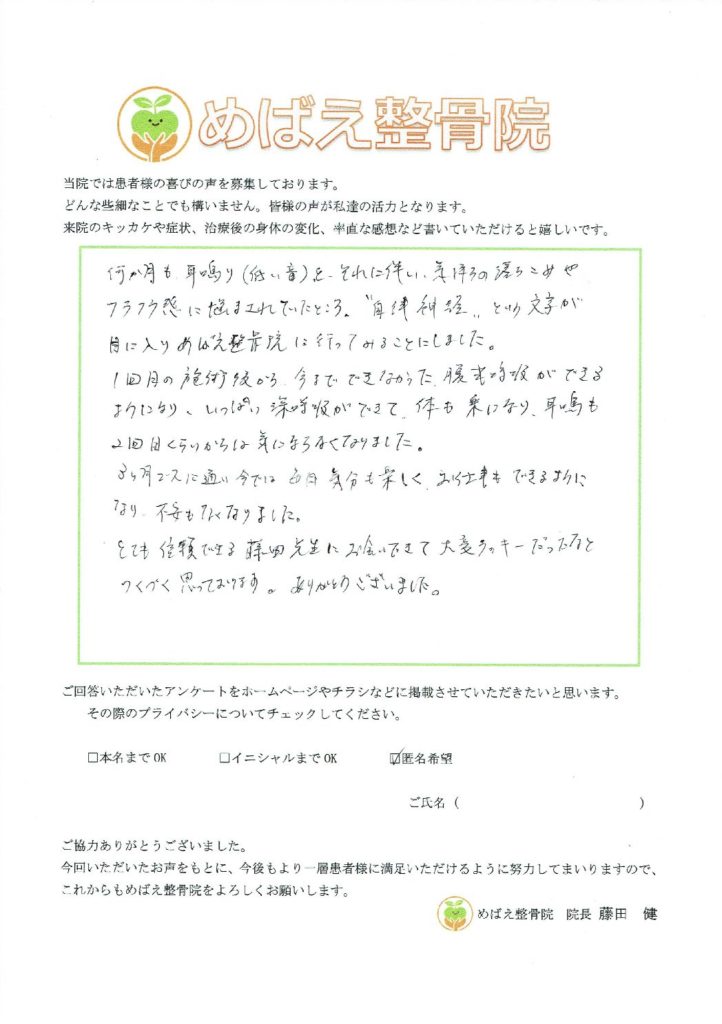 めばえ整骨院
当院では患者様の喜びの声を募集しております。
どんな些細なことでも構いません。皆様の声が私達の活力となります。
来院のキッカケや症状、治療後の身体の変化、率直な感想など書いていただけると嬉しいです。
何か月も耳鳴り(低い音)と、それに伴い、気持ちの落ちこみや
フラフラ感に悩まされていたところ、"自律神経〟という文字が
目に入りめばえ整骨院に行ってみることにしました。
1回目の施術後から、今までできなかった腹式呼吸ができる
ようになり、いっぱい深呼吸ができて、体も楽になり、耳鳴も
2回目くらいからは気にならなくなりました。
3ヶ月コースに通い今では毎日気分も楽しく、お仕事もできるように
なり、不安もなくなりました。
とても信頼できる藤田先生にお会いできて大変ラッキーだったなと
つくづく思っております。ありがとうございました。
ご回答いただいたアンケートをホームページやチラシなどに掲載させていただきたいと思います。
その際のプライバシーについてチェックしてください。
□本名までOK □イニシャルまでOK ☑匿名希望
ご氏名( )
ご協力ありがとうございました。
今回いただいたお声をもとに、今後もより一層患者様に満足いただけるように努力してまいりますので、
これからもめばえ整骨院をよろしくお願いします。
めばえ整骨院 院長 藤田 健